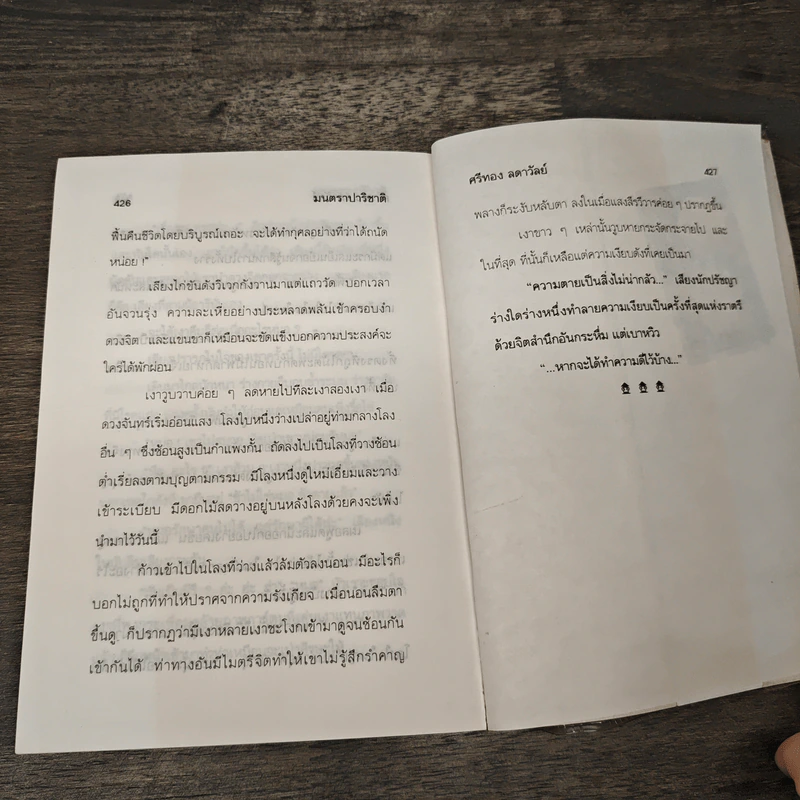 426
มนตราปาริชาติ
ฟื้นคืนชีวิตโดยบริบูรณ์เถอะ จะได้ทำกุศลอย่างที่ว่าได้ถนัด
หน่อย !"
เสียงไก่ขันดังวิเวกกังวานมาแต่แถววัด บอกเวลา
อันจวนรุ่ง ความละเหี่ยอย่างประหลาดพลันเข้าครอบงำ
ดวงจิต และแขนขาก็เหมือนจะขัดแข็งบอกความประสงค์จะ
ใคร่ได้พักผ่อน
เงาวูบวาบค่อย ๆ ลดหายไปทีละเงาสองเงา เมื่อ
ดวงจันทร์เริ่มอ่อนแสง โลงใบหนึ่งว่างเปล่าอยู่ท่ามกลางโลง
อื่น ๆ ซึ่งซ้อนสูงเป็นกำแพงกั้น ถัดลงไปเป็นโลงที่วางซ้อน
ต่ำเรี่ยลงตามบุญตามกรรม มีโลงหนึ่งดูใหม่เอี่ยมและวาง
เข้าระเบียบ มีดอกไม้สดวางอยู่บนหลังโลงด้วยคงจะเพิ่ง
นำมาไว้วันนี้
ก้าวเข้าไปในโลงที่ว่างแล้วล้มตัวลงนอน มีอะไรก็
บอกไม่ถูกที่ทำให้ปราศจากความรังเกียจ เมื่อนอนลืมตา
ขึ้นดู ก็ปรากฏว่ามีเงาหลายเงาชะโงกเข้ามาดูจนซ้อนกัน
เข้ากันได้ ท่าทางอันมีไมตรีจิตทำให้เขาไม่รู้สึกรำคาญ
ศรีทอง ลดาวัลย์
427
พลางก็ระงับหลับตา ลงในเมื่อแสงสีรวิวารค่อย ๆ ปรากฏขึ้น
เงาขาว ๆ เหล่านั้นวูบหายกระจัดกระจายไป และ
ในที่สุด ที่นั้นก็เหลือแต่ความเงียบดังที่เคยเป็นมา
"ความตายเป็นสิ่งไม่น่ากลัว..." เสียงนักปรัชญา
ร่างใดร่างหนึ่งทำลายความเงียบเป็นครั้งที่สุดแห่งราตรี
ด้วยจิตสำนึกอันกระหึ่ม แต่เบาหวิว
"...หากจะได้ทำความดีไว้บ้าง..."